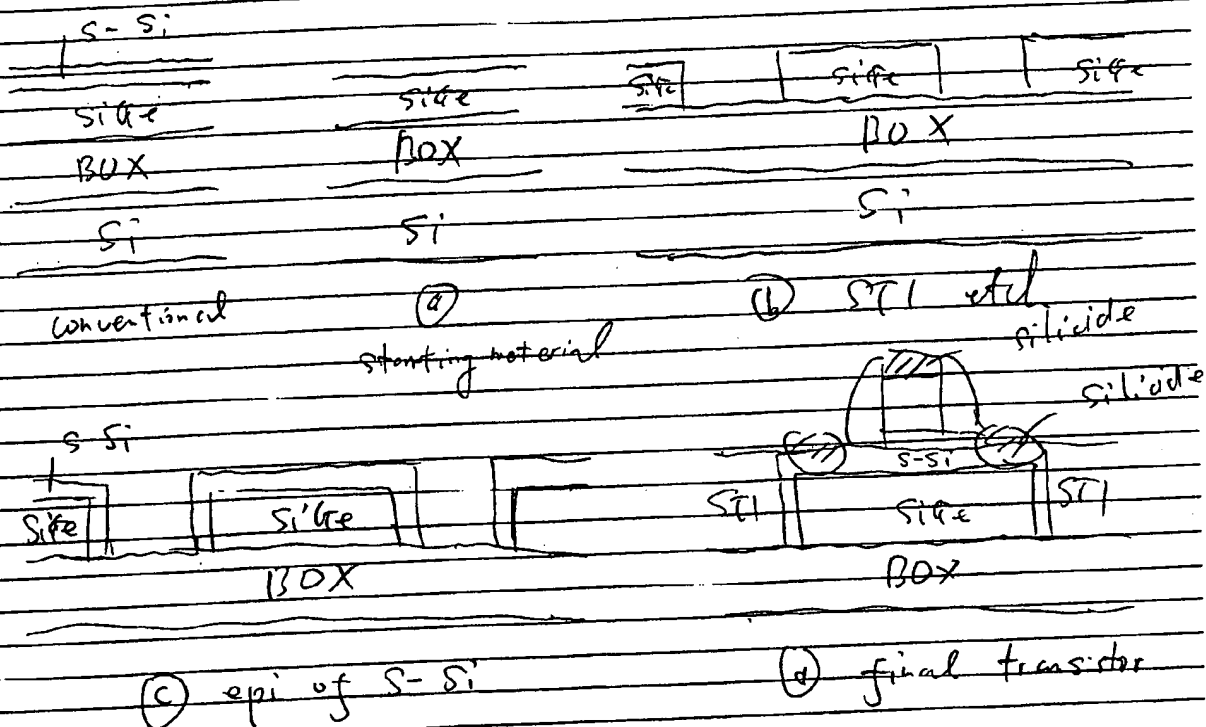 S-Si
SiGe
BOX
Si
conventional
SiGe
BOX
Si
(a)
starting material
SiGe SiGe SiGe
BOX
Si
(b) STI etch
S-Si
SiGe SiGe
BOX
(c) epi of S-Si
silicide
silicide
S-Si
STI SiGe STI
BOX
(d) final transistor